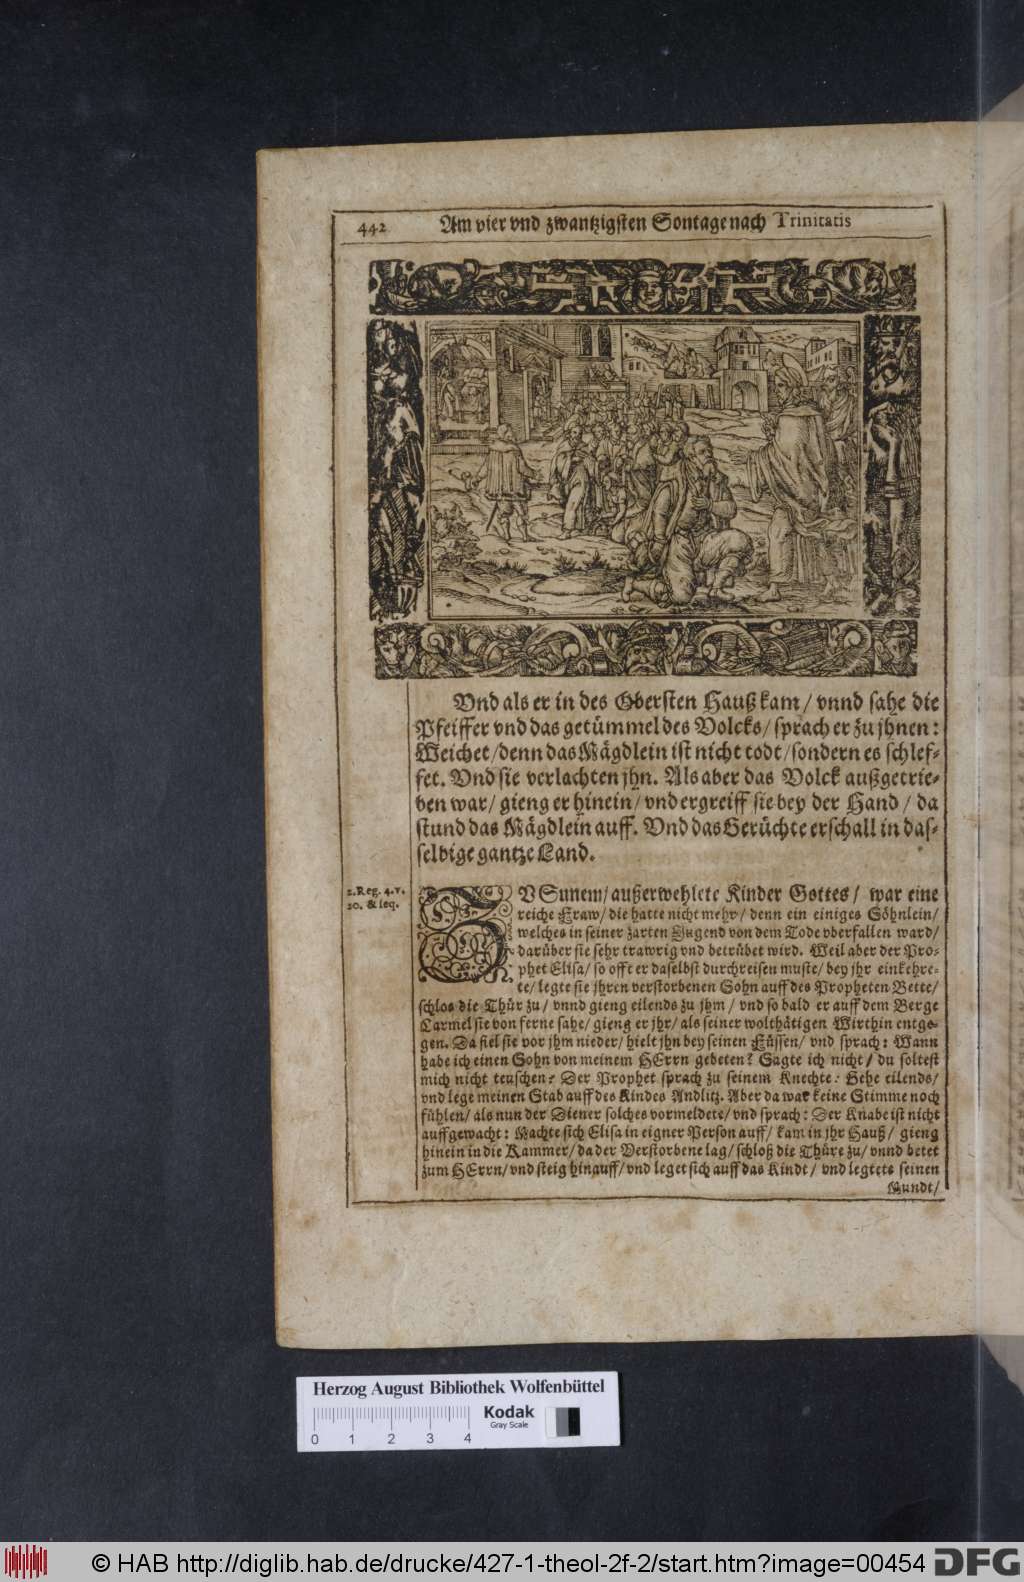 442
Am vier vnd zwantzigsten Sontage nach Trinitatis
Vnd als er in des Obersten Hauß kam / vnnd sahe die
Pfeiffer vnd das getümmel des Volcks / sprach er zu jhnen :
Weichet / denn das Mägdlein ist nicht todt / sondern es schlef-
fet. Vnd sie verlachten jhn. Als aber das Volck außgetrie-
ben war / gieng er hinein / vnd ergreiff sie bey der Hand / da
stund das Mägdlein auff. Vnd das Gerüchte erschall in das-
selbige gantze Land.
2. Reg. 4. v.
20. & seq.
ZV Sunem / außerwehlete Kinder Gottes / war eine
reiche Fraw / die hatte nicht mehr / denn ein einiges Söhnlein /
welches in seiner zarten Jugend von dem Tode vberfallen ward /
darüber sie sehr trawrig vnd betrübet wird. Weil aber der Pro-
phet Elisa / so offt er daselbst durchreisen muste / bey jhr einkehre-
te / legte sie jhren verstorbenen Sohn auff des Propheten Bette /
schlos die Thür zu / vnnd gieng eilends zu jhm / vnd so bald er auff dem Berge
Carmel sie von ferne sahe / gieng er jhr / als seiner wolthätigen Wirthin entge-
gen. Da fiel sie vor jhm nieder / hielt jhn bey seinen Füssen / vnd sprach : Wann
habe ich einen Sohn von meinem HErrn gebeten ? Sagte ich nicht / du soltest
mich nicht teuschen ? Der Prophet sprach zu seinem Knechte : Gehe eilends /
vnd lege meinen Stab auff des Kindes Andlitz. Aber da war keine Stimme noch
fühlen / als nun der Diener solches vormeldete / vnd sprach : Der Knabe ist nicht
auffgewacht : Machte sich Elisa in eigner Person auff / kam in jhr Hauß / gieng
hinein in die Kammer / da der Verstorbene lag / schloß die Thüre zu / vnnd betet
zum HErrn / vnd steig hinauff / vnd leget sich auff das Kindt / vnd legtets seinen
Mundt /
Herzog August Bibliothek Wolfenbüttel
Kodak
Gray Scale
0 1 2 3 4
© HAB http://diglib.hab.de/drucke/427-1-theol-2f-2/start.htm?image=00454
DFG